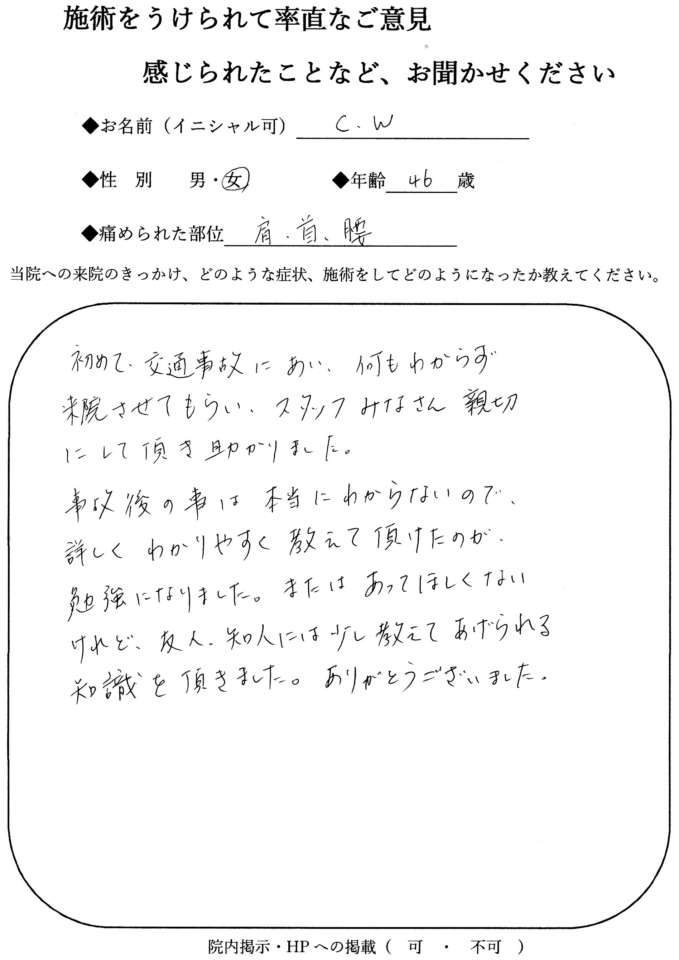 施術をうけられて率直なご意見
感じられたことなど、お聞かせください
◆お名前（イニシャル可） C.W
◆性 別 男・女 ◆年齢 46 歳
◆痛められた部位 肩、首、腰
当院への来院のきっかけ、どのような症状、施術をしてどのようになったか教えてください。
初めて、交通事故にあい、何もわからず
来院させてもらい、スタッフみなさん 親切
にして頂き助かりました。
事故後の事は本当にわからないので、
詳しくわかりやすく教えて頂けたのが、
勉強になりました。またはあってほしくない
けれど、友人、知人には少し教えてあげられる
知識を頂きました。ありがとうございました。
院内掲示・HPへの掲載（ 可 ・ 不可 ）